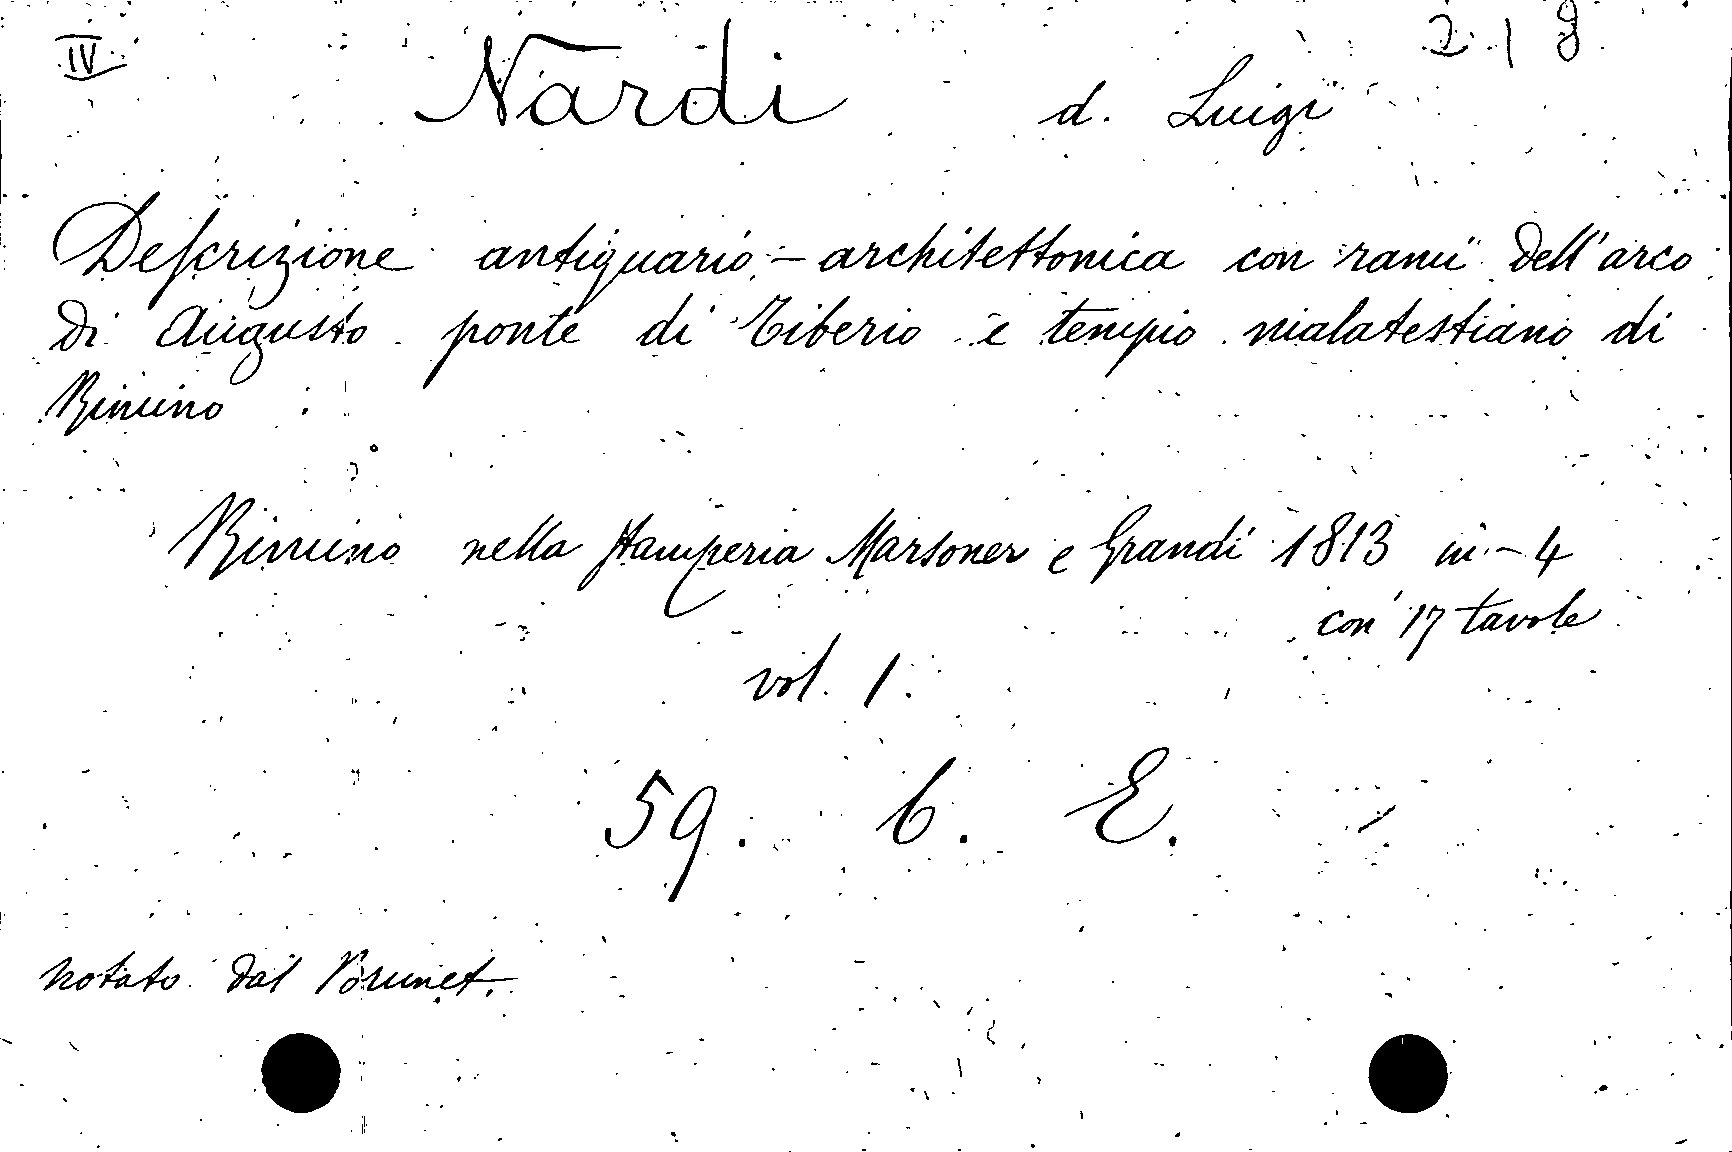 IV
218
Nardi d. Luigi
Descrizione antiquario-architettonica con rami dell'arco
di Augusto ponte di Tiberio e tempio malatestiano di
Rimino
Rimino nella stamperia Marsoner e Grandi 1813 in-4
con 17 tavole
vol. 1.
59. 6. E.
notato dal Brunet.